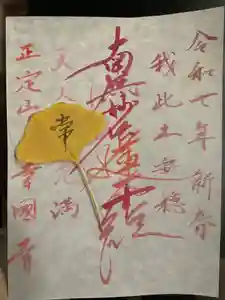 令和七年新春
我此土安穏
南無妙法蓮華経
天人常充満
正定山 幸國寺